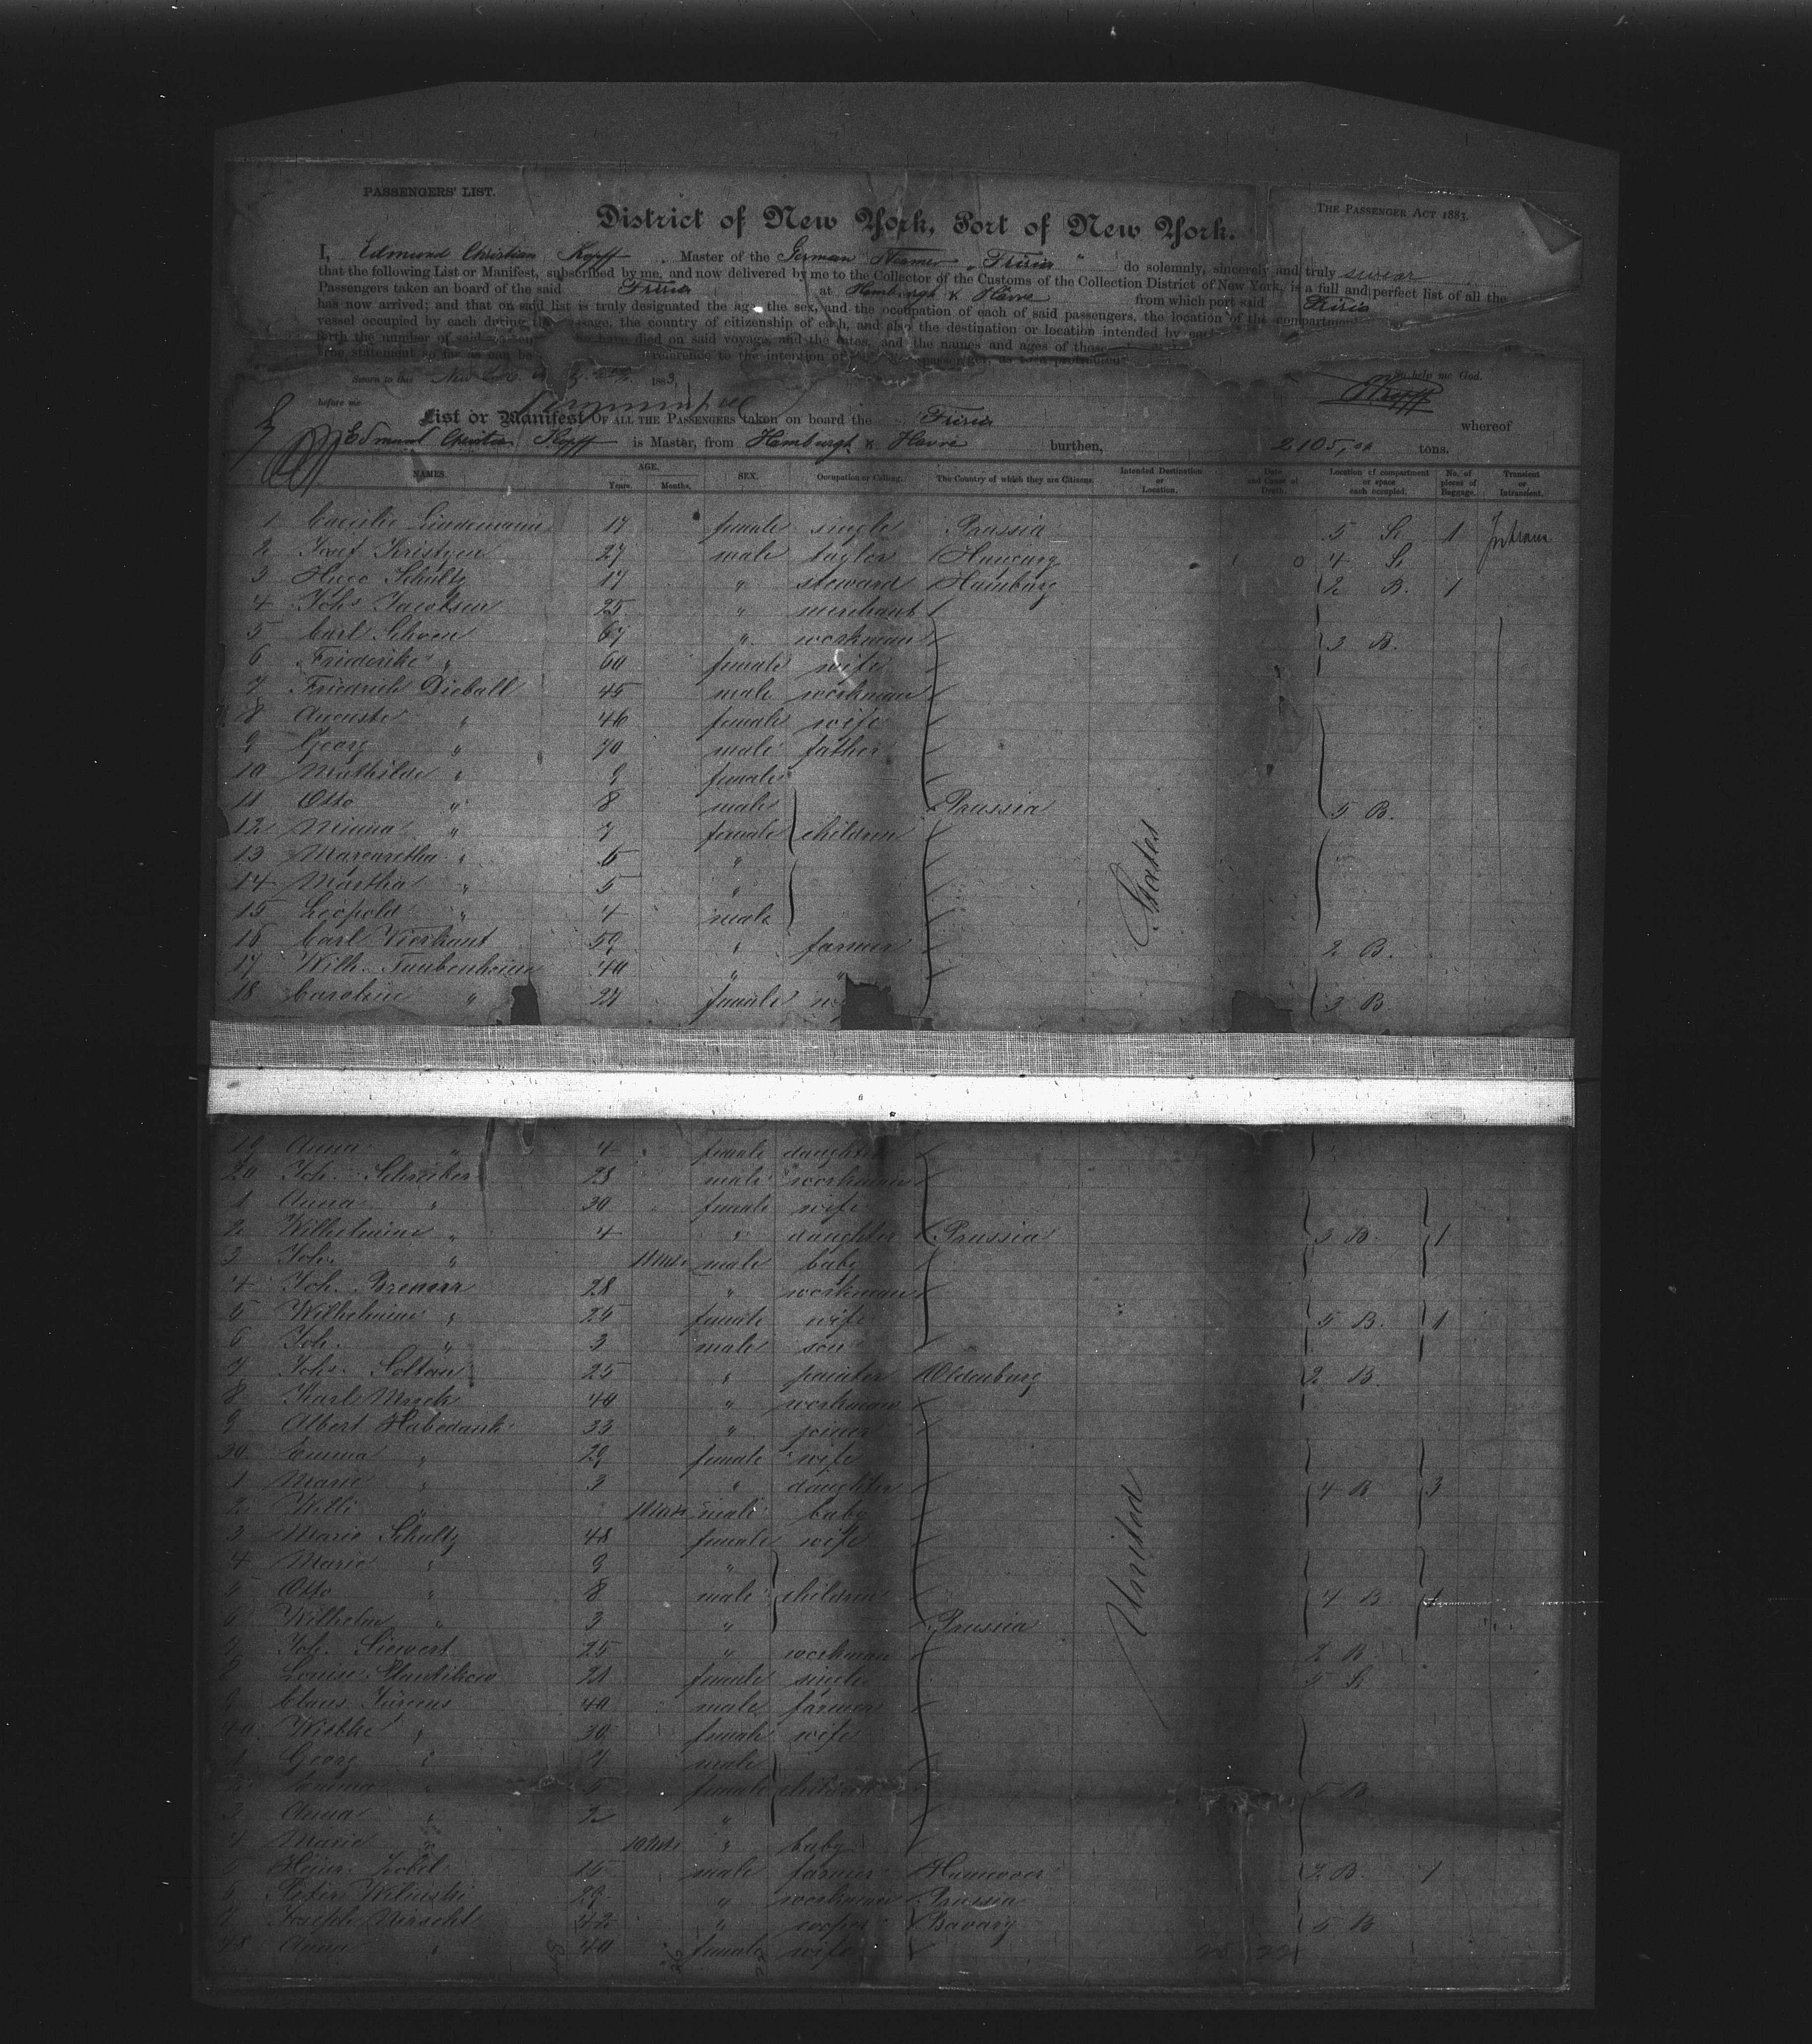 PASSENGERS' LIST.
THE PASSENGER ACT 1883
District of New York, Port of New York.
I, Edmund Christian Kopff Master of the German Steamer „Frisia" do solemnly, sincerely and truly swear
that the following List or Manifest, subscribed by me, and now delivered by me to the Collector of the Customs of the Collection District of New York, is a full and perfect list of all the
Passengers taken on board of the said Frisia at Hamburgh & Havre from which port said Frisia
has now arrived; and that on said list is truly designated the age, the sex, and the occupation of each of said passengers, the location of the compartment
vessel occupied by each during the passage, the country of citizenship of each, and also the destination or location intended by each
forth the number of said have died on said voyage, and the dates, and the names and ages of those
true statement so far as can be reference to the intention of passenger, as to a protracted
Sworn to this New 1883
So help me God.
before me
Kopff
List or Manifest OF ALL THE PASSENGERS taken on board the Frisia whereof
Edmund Christian Kopff is Master, from Hamburgh & Havre burthen, 2105,00 tons.
NAMES. AGE. Years. Months. SEX. Occupation or Calling. The Country of which they are Citizens. Intended Destination or Location. Date and Cause of Death. Location of compartment or space each occupied. No. of pieces of Baggage. Transient or Intransient.
1 Caecilie Lindemann 17 female single Prussia 5 St 1 Intrans
2 Josef Kristyen 27 male taylor Hungary 0 4 St
3 Hugo Schultz 17 " steward Hamburg 2 B. 1
4 Johs Jacobsen 25 " merchant
5 Carl Schoen 67 " workman 3 B.
6 Friderike " 60 female wife
7 Friedrich Dieball 45 male workman
8 Auguste " 46 female wife
9 Georg " 70 male father
10 Mathilde " 9 female
11 Otto " 8 male Prussia 5 B.
12 Miana " 7 female children
13 Margaretha " 6 "
14 Martha " 5 "
15 Leopold " 4 male
16 Carl Vierhaut 59 " farmer 2 B.
17 Wilh. Taubenheim 40 " "
18 Caroline " 27 female 3 B
States
19 Anna " 4 female daughter
20 Joh. Schreiber 28 male workman
1 Anna " 30 female wife
2 Wilhelmine " 4 " daughter Prussia 3 B. 1
3 Joh. " 11 mos male baby
4 Joh. 28 " workman
5 Wilhelmine " 25 female wife 5 B. 1
6 Joh. " 3 male son
7 Johs. Soltau 25 " painter Oldenburg 2 B
8 Karl 40 " workman
9 Albert Habedank 33 " joiner
30 Emma " 29 female wife
1 Marie " 3 " daughter 4 B 3
2 Willi " 10 mos male baby
3 Marie Schultz 48 female wife
4 Marie " 9 "
5 Otto " 8 male children 4 B
6 Wilhelm " 3 " Prussia
7 Joh. Sievert 25 " workman 2 B.
8 Louise 21 female single 5 St
9 Claus Jürgens 40 male farmer
40 Wiebke " 30 female wife
1 Georg " 7 male
2 " 5 female children 5 B.
3 Anna " 2 "
4 Marie " 10 mos " baby
5 Heinr. Zobel 15 male farmer Hannover 2 B. 1
6 Peter Wilinski 29 " workman Prussia
7 Joseph 42 " cooper Bavary 5 B
48 Anna " 40 female wife
United